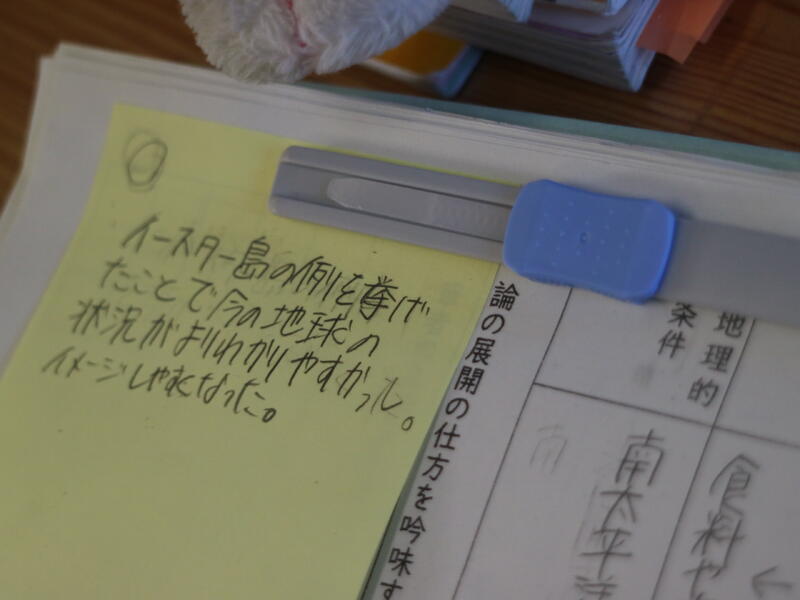 イースター島の例を挙げ
たことで今の地球の
状況がよりわかりやすかった。
イメージしやすくなった。
地理的
条件
論の展開の仕方を吟味す
食料や
南太平洋
南